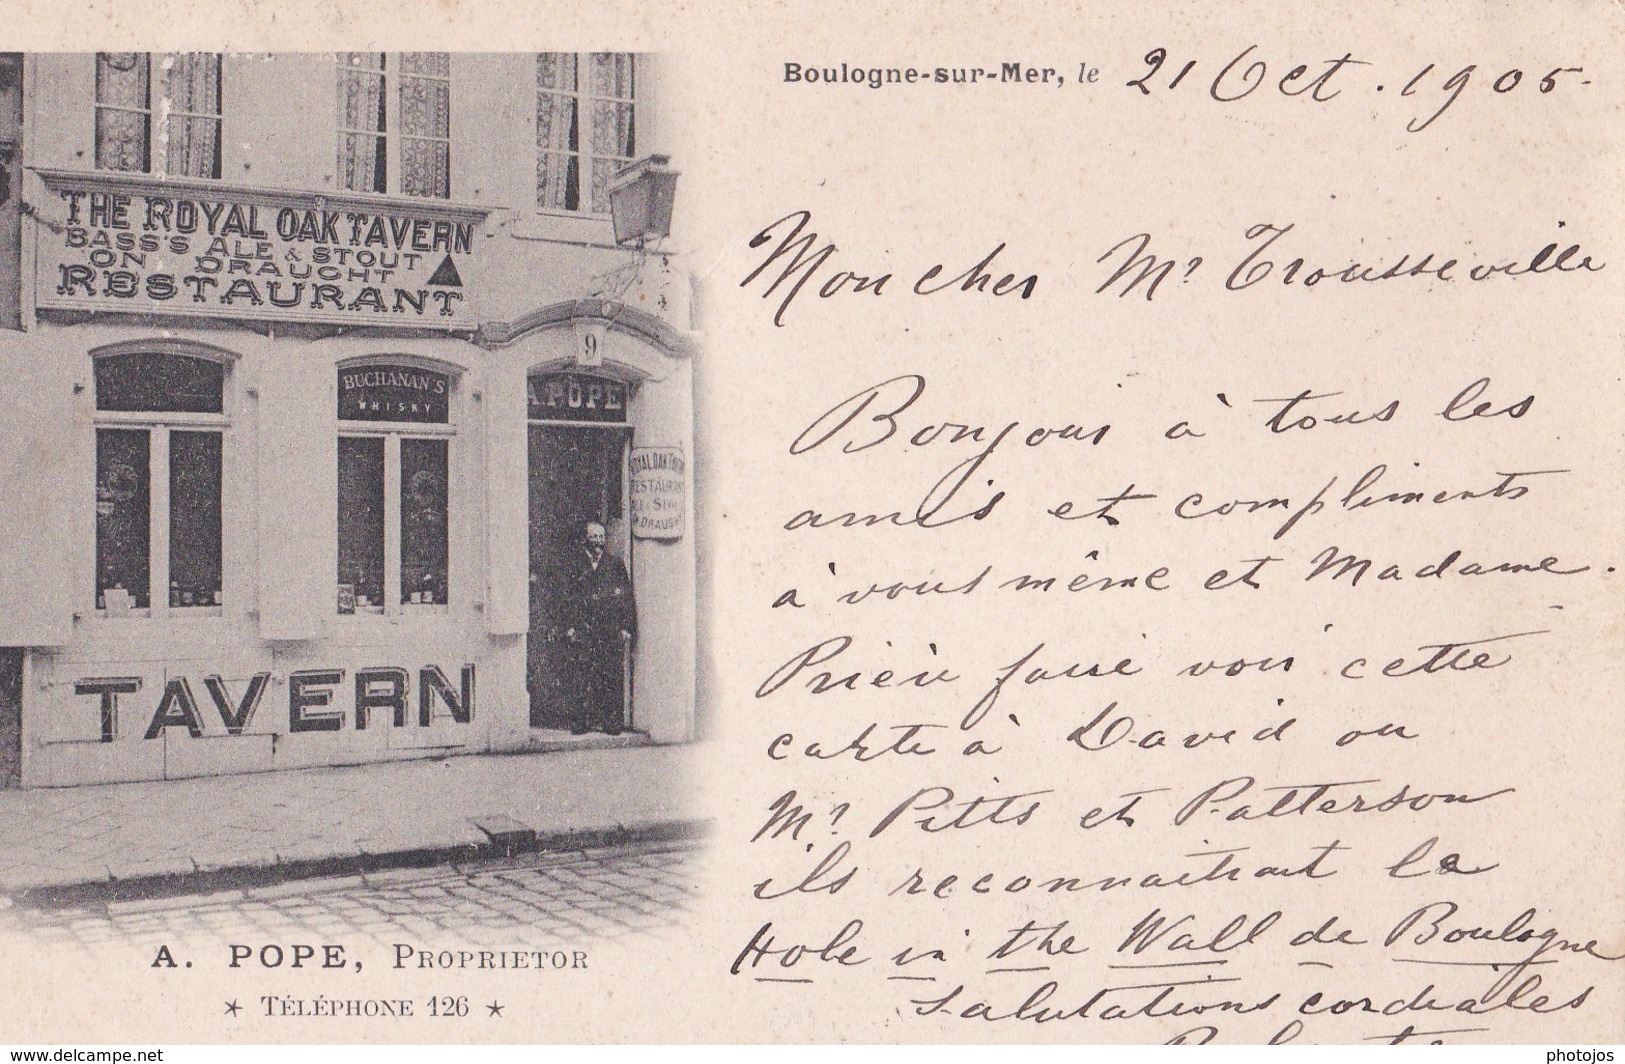 THE ROYAL OAK TAVERN
BASS'S ALE & STOUT
ON DRAUGHT
RESTAURANT
9
BUCHANAN'S
WHISKY
A. POPE
ROYAL OAK
RESTAURANT
DRAUGHT
TAVERN
A. POPE, PROPRIETOR
* TÉLÉPHONE 126 *
Boulogne-sur-Mer, le 21 Oct. 1905.
Mon cher Mr Trousseville
Bonjour à tous les
amis et compliments
à vous même et Madame.
Prière faire voir cette
carte à David ou
Mr Pitts et Patterson
ils reconnaitrait le
Hole in the Wall de Boulogne
Salutations cordiales
www.delcampe.net
photojos